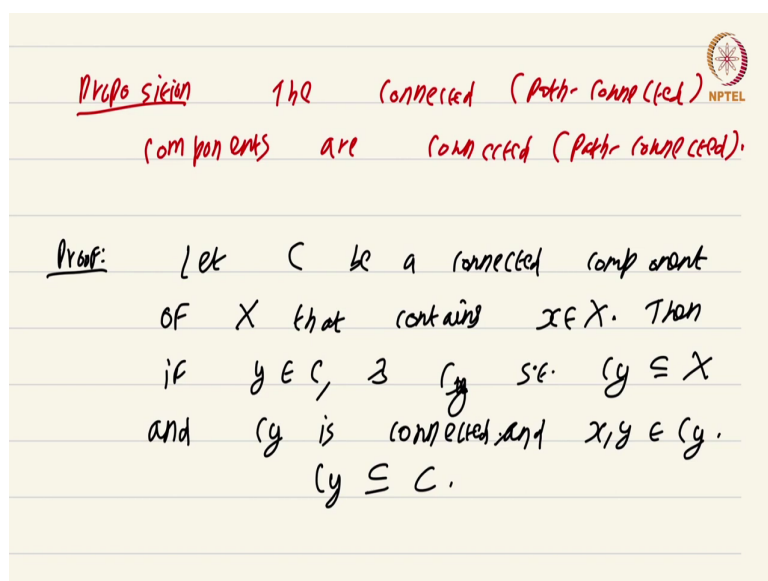 NPTEL
Proposition The connected (path-connected)
components are connected (path-connected).
Proof: Let C be a connected component
of X that contains x ∈ X. Then
if y ∈ C, ∃ Cy s.t. Cy ⊆ X
and Cy is connected and x, y ∈ Cy.
Cy ⊆ C.